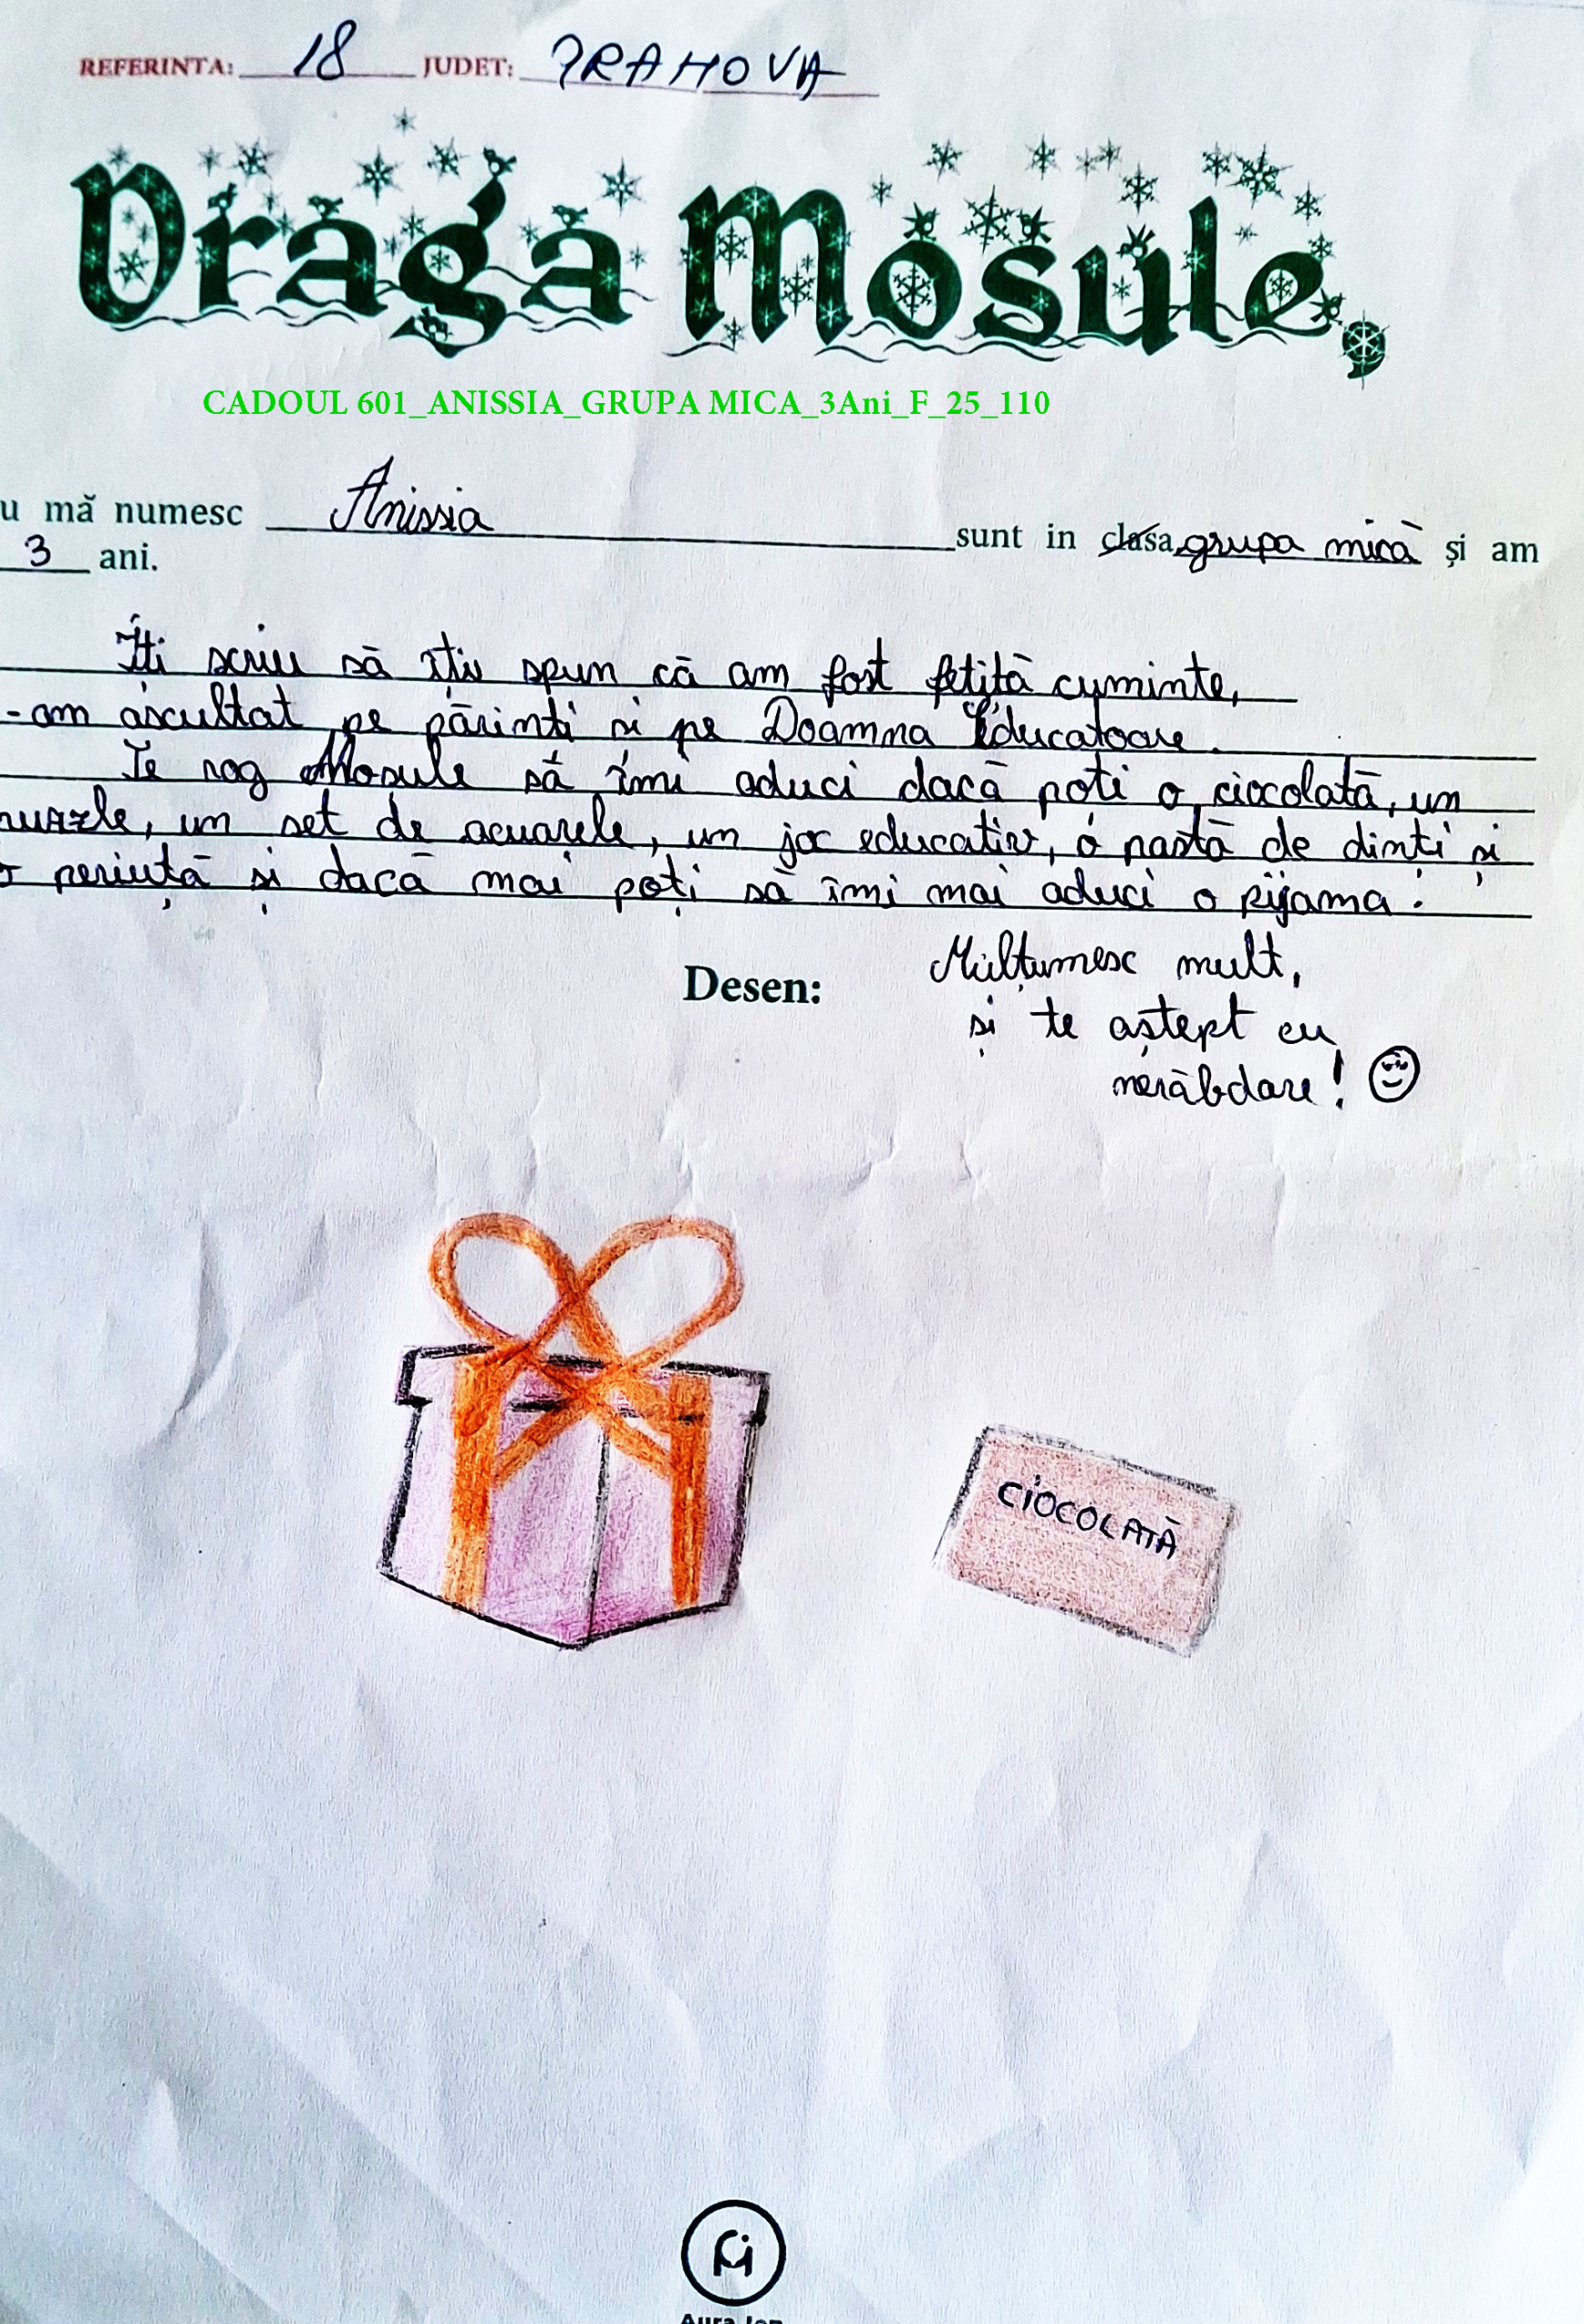 REFERINTA: 18 JUDET: PRAHOVA
Draga Mosule,
CADOUL 601_ANISSIA_GRUPA MICA_3Ani_F_25_110
u mă numesc Anissia sunt in clasa grupa mică și am
3 ani.
Îți scriu să îți spun că am fost fetiță cuminte,
-am ascultat pe părinți și pe Doamna Educatoare.
Te rog Mosule să îmi aduci dacă poți o ciocolată, un
puzzle, un set de acuarele, un joc educativ, o pastă de dinți și
o periuță și dacă mai poți să îmi mai aduci o pijama.
Desen:
Mulțumesc mult,
și te aștept cu
nerăbdare!
CIOCOLATĂ
Aura Ion